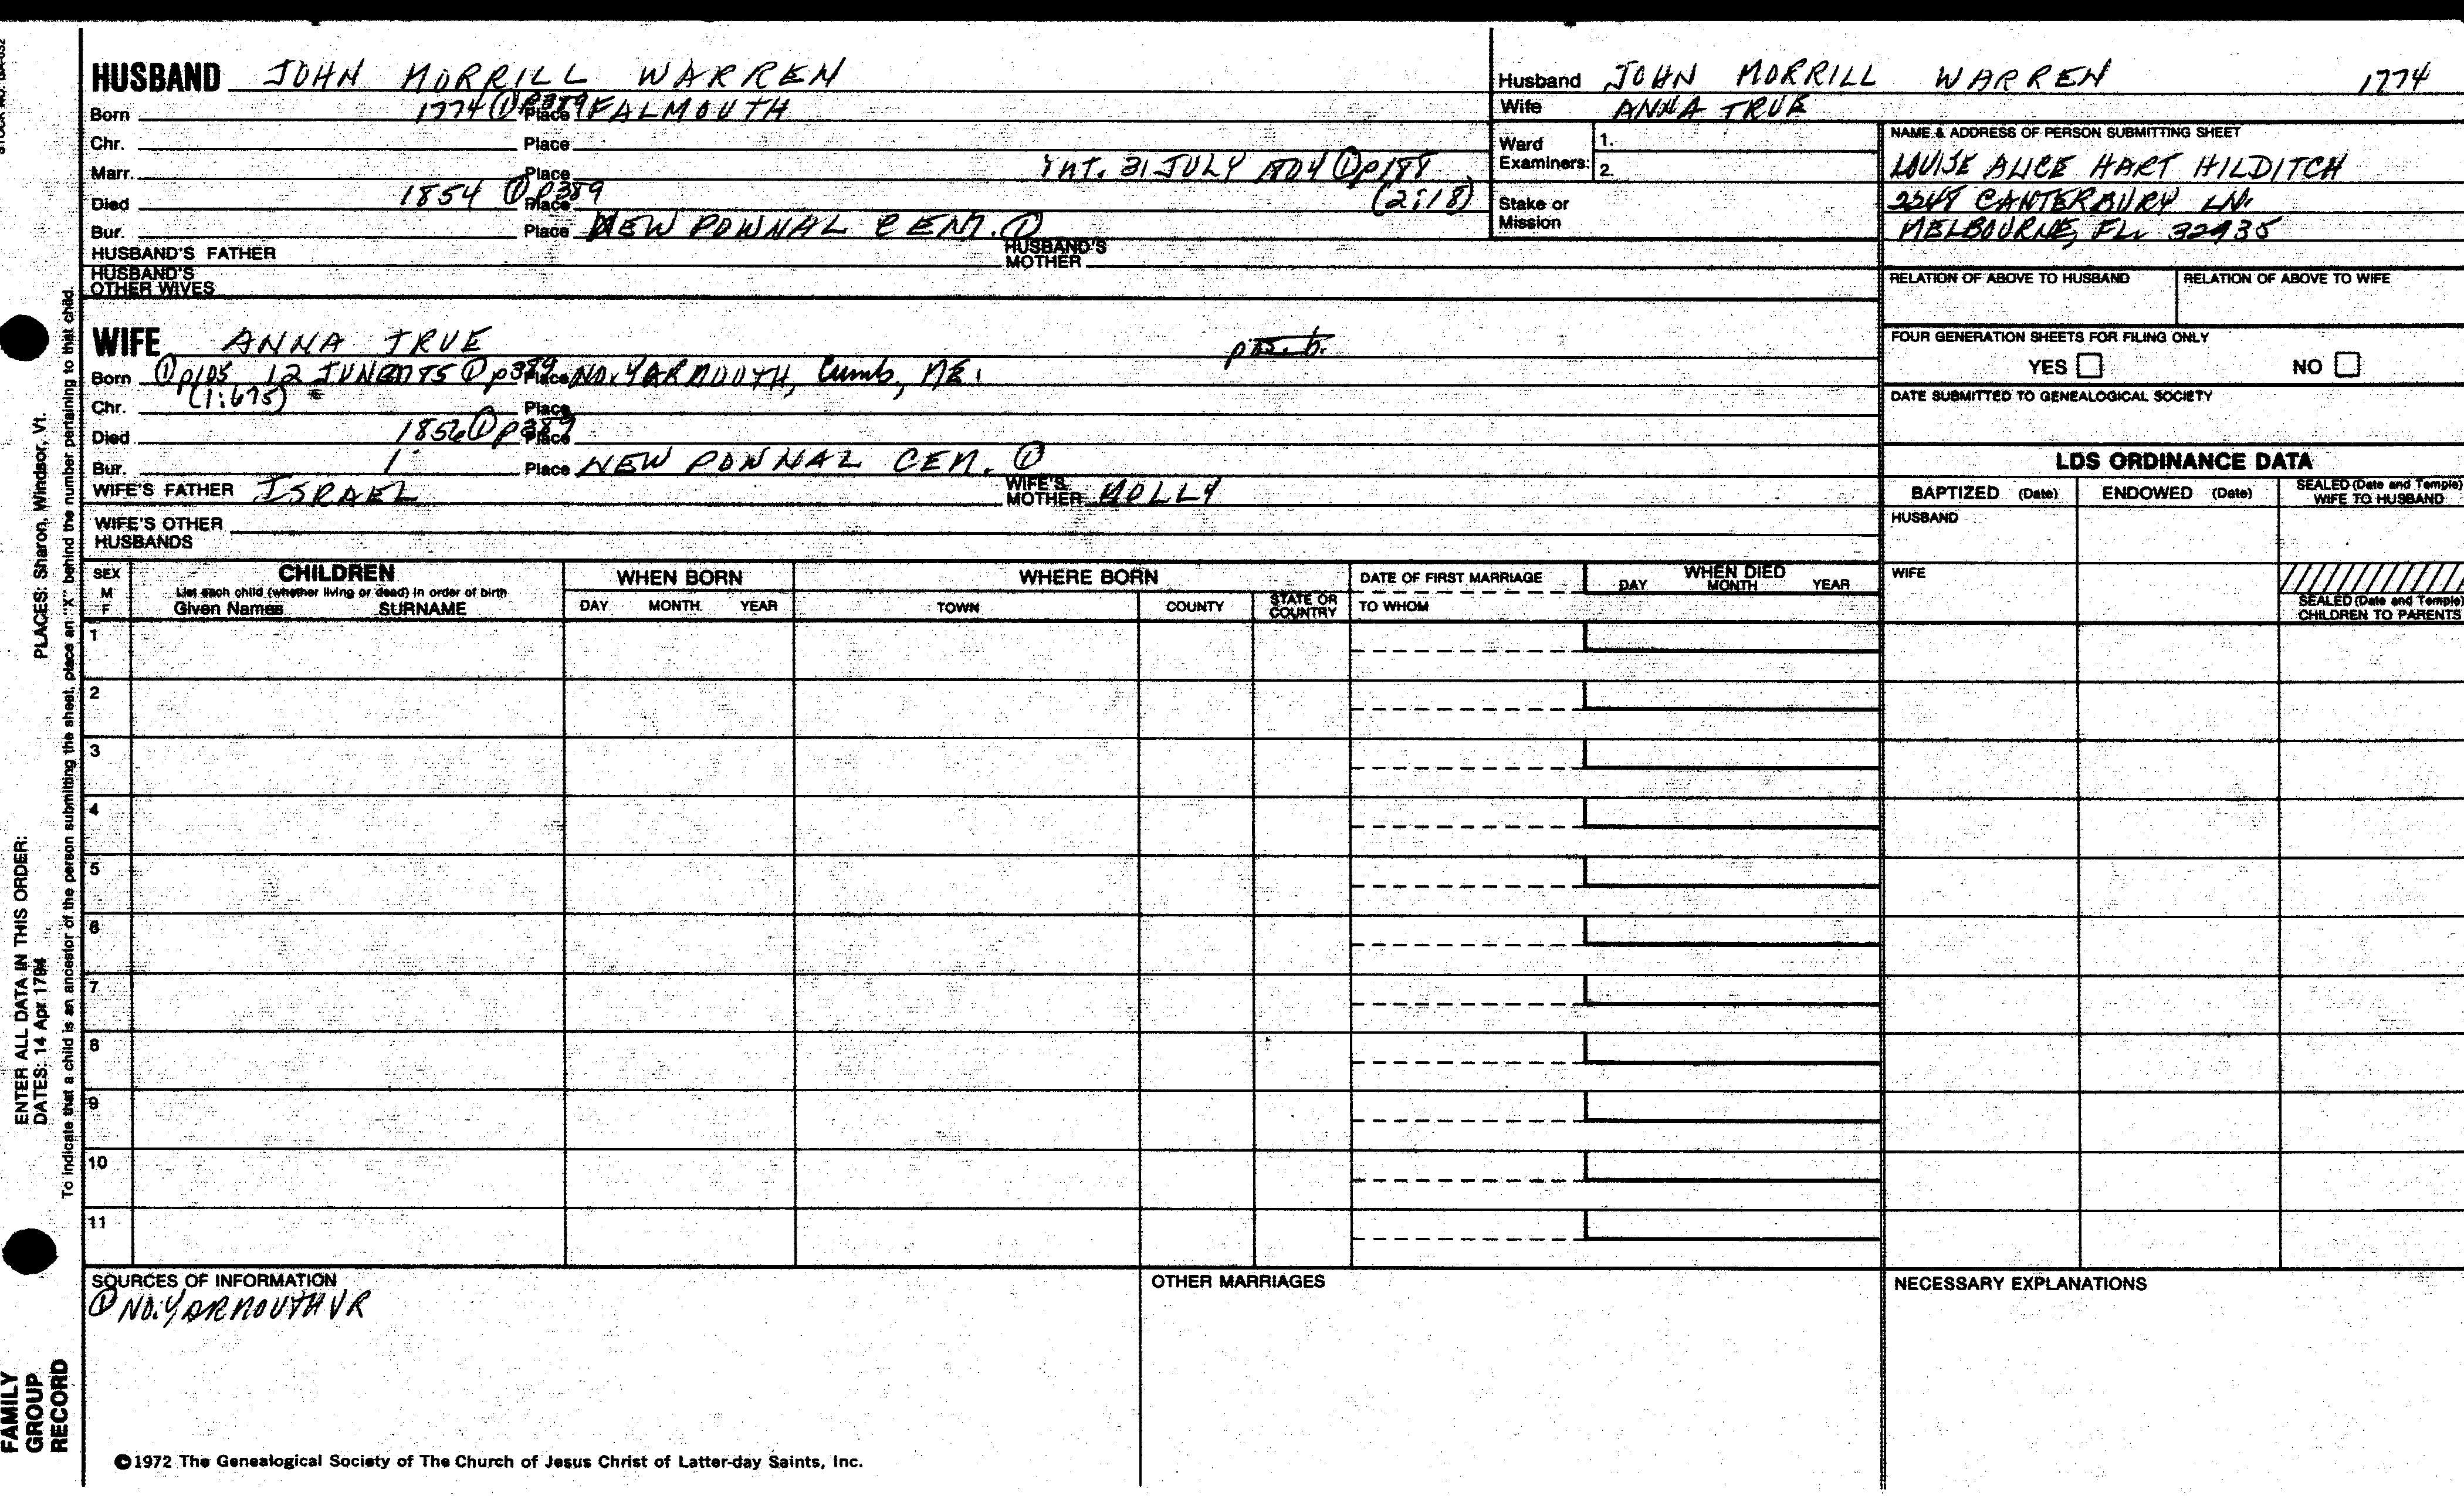 HUSBAND JOHN MORRILL WARREN
Born 1774 ① P389 Place FALMOUTH
Chr. Place
Marr. Place INT. 31 JULY 1804 ① p188
Died 1854 ① p389 Place (2:18)
Bur. Place NEW POWNAL CEM. ①
HUSBAND'S FATHER HUSBAND'S MOTHER
HUSBAND'S OTHER WIVES
Husband JOHN MORRILL WARREN 1774
Wife ANNA TRUE
Ward Examiners: 1.
2.
Stake or Mission
NAME & ADDRESS OF PERSON SUBMITTING SHEET
LOUISE ALICE HART HILDITCH
2248 CANTERBURY LN.
MELBOURNE, FL. 32935
RELATION OF ABOVE TO HUSBAND RELATION OF ABOVE TO WIFE
FOUR GENERATION SHEETS FOR FILING ONLY
YES NO
DATE SUBMITTED TO GENEALOGICAL SOCIETY
WIFE ANNA TRUE
Born ① p105, 12 JUNE 1775 ① p389 Place NO. YARMOUTH, Cumb, ME.
(1:675)
Chr. Place
Died 1856 ① p389 Place
Bur. Place NEW POWNAL CEM. ①
WIFE'S FATHER ISRAEL WIFE'S MOTHER MOLLY
WIFE'S OTHER HUSBANDS
LDS ORDINANCE DATA
BAPTIZED (Date) ENDOWED (Date) SEALED (Date and Temple) WIFE TO HUSBAND
HUSBAND
WIFE
SEALED (Date and Temple) CHILDREN TO PARENTS
SEX M F
CHILDREN
List each child (whether living or dead) in order of birth
Given Names SURNAME
WHEN BORN
DAY MONTH YEAR
WHERE BORN
TOWN COUNTY STATE OR COUNTRY
DATE OF FIRST MARRIAGE
TO WHOM
WHEN DIED
DAY MONTH YEAR
1
2
3
4
5
6
7
8
9
10
11
SOURCES OF INFORMATION
① NO. YARMOUTH VR
OTHER MARRIAGES
NECESSARY EXPLANATIONS
©1972 The Genealogical Society of The Church of Jesus Christ of Latter-day Saints, Inc.
FAMILY GROUP RECORD
ENTER ALL DATA IN THIS ORDER:
DATES: 14 Apr 1794
PLACES: Sharon, Windsor, Vt.
To indicate that a child is an ancestor of the person submitting the sheet, place an "X" behind the number pertaining to that child.